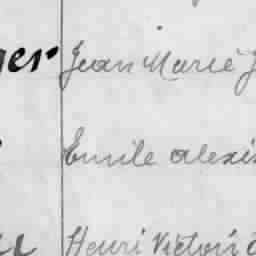 Jean Marie
Emile alexis
Henri Victor